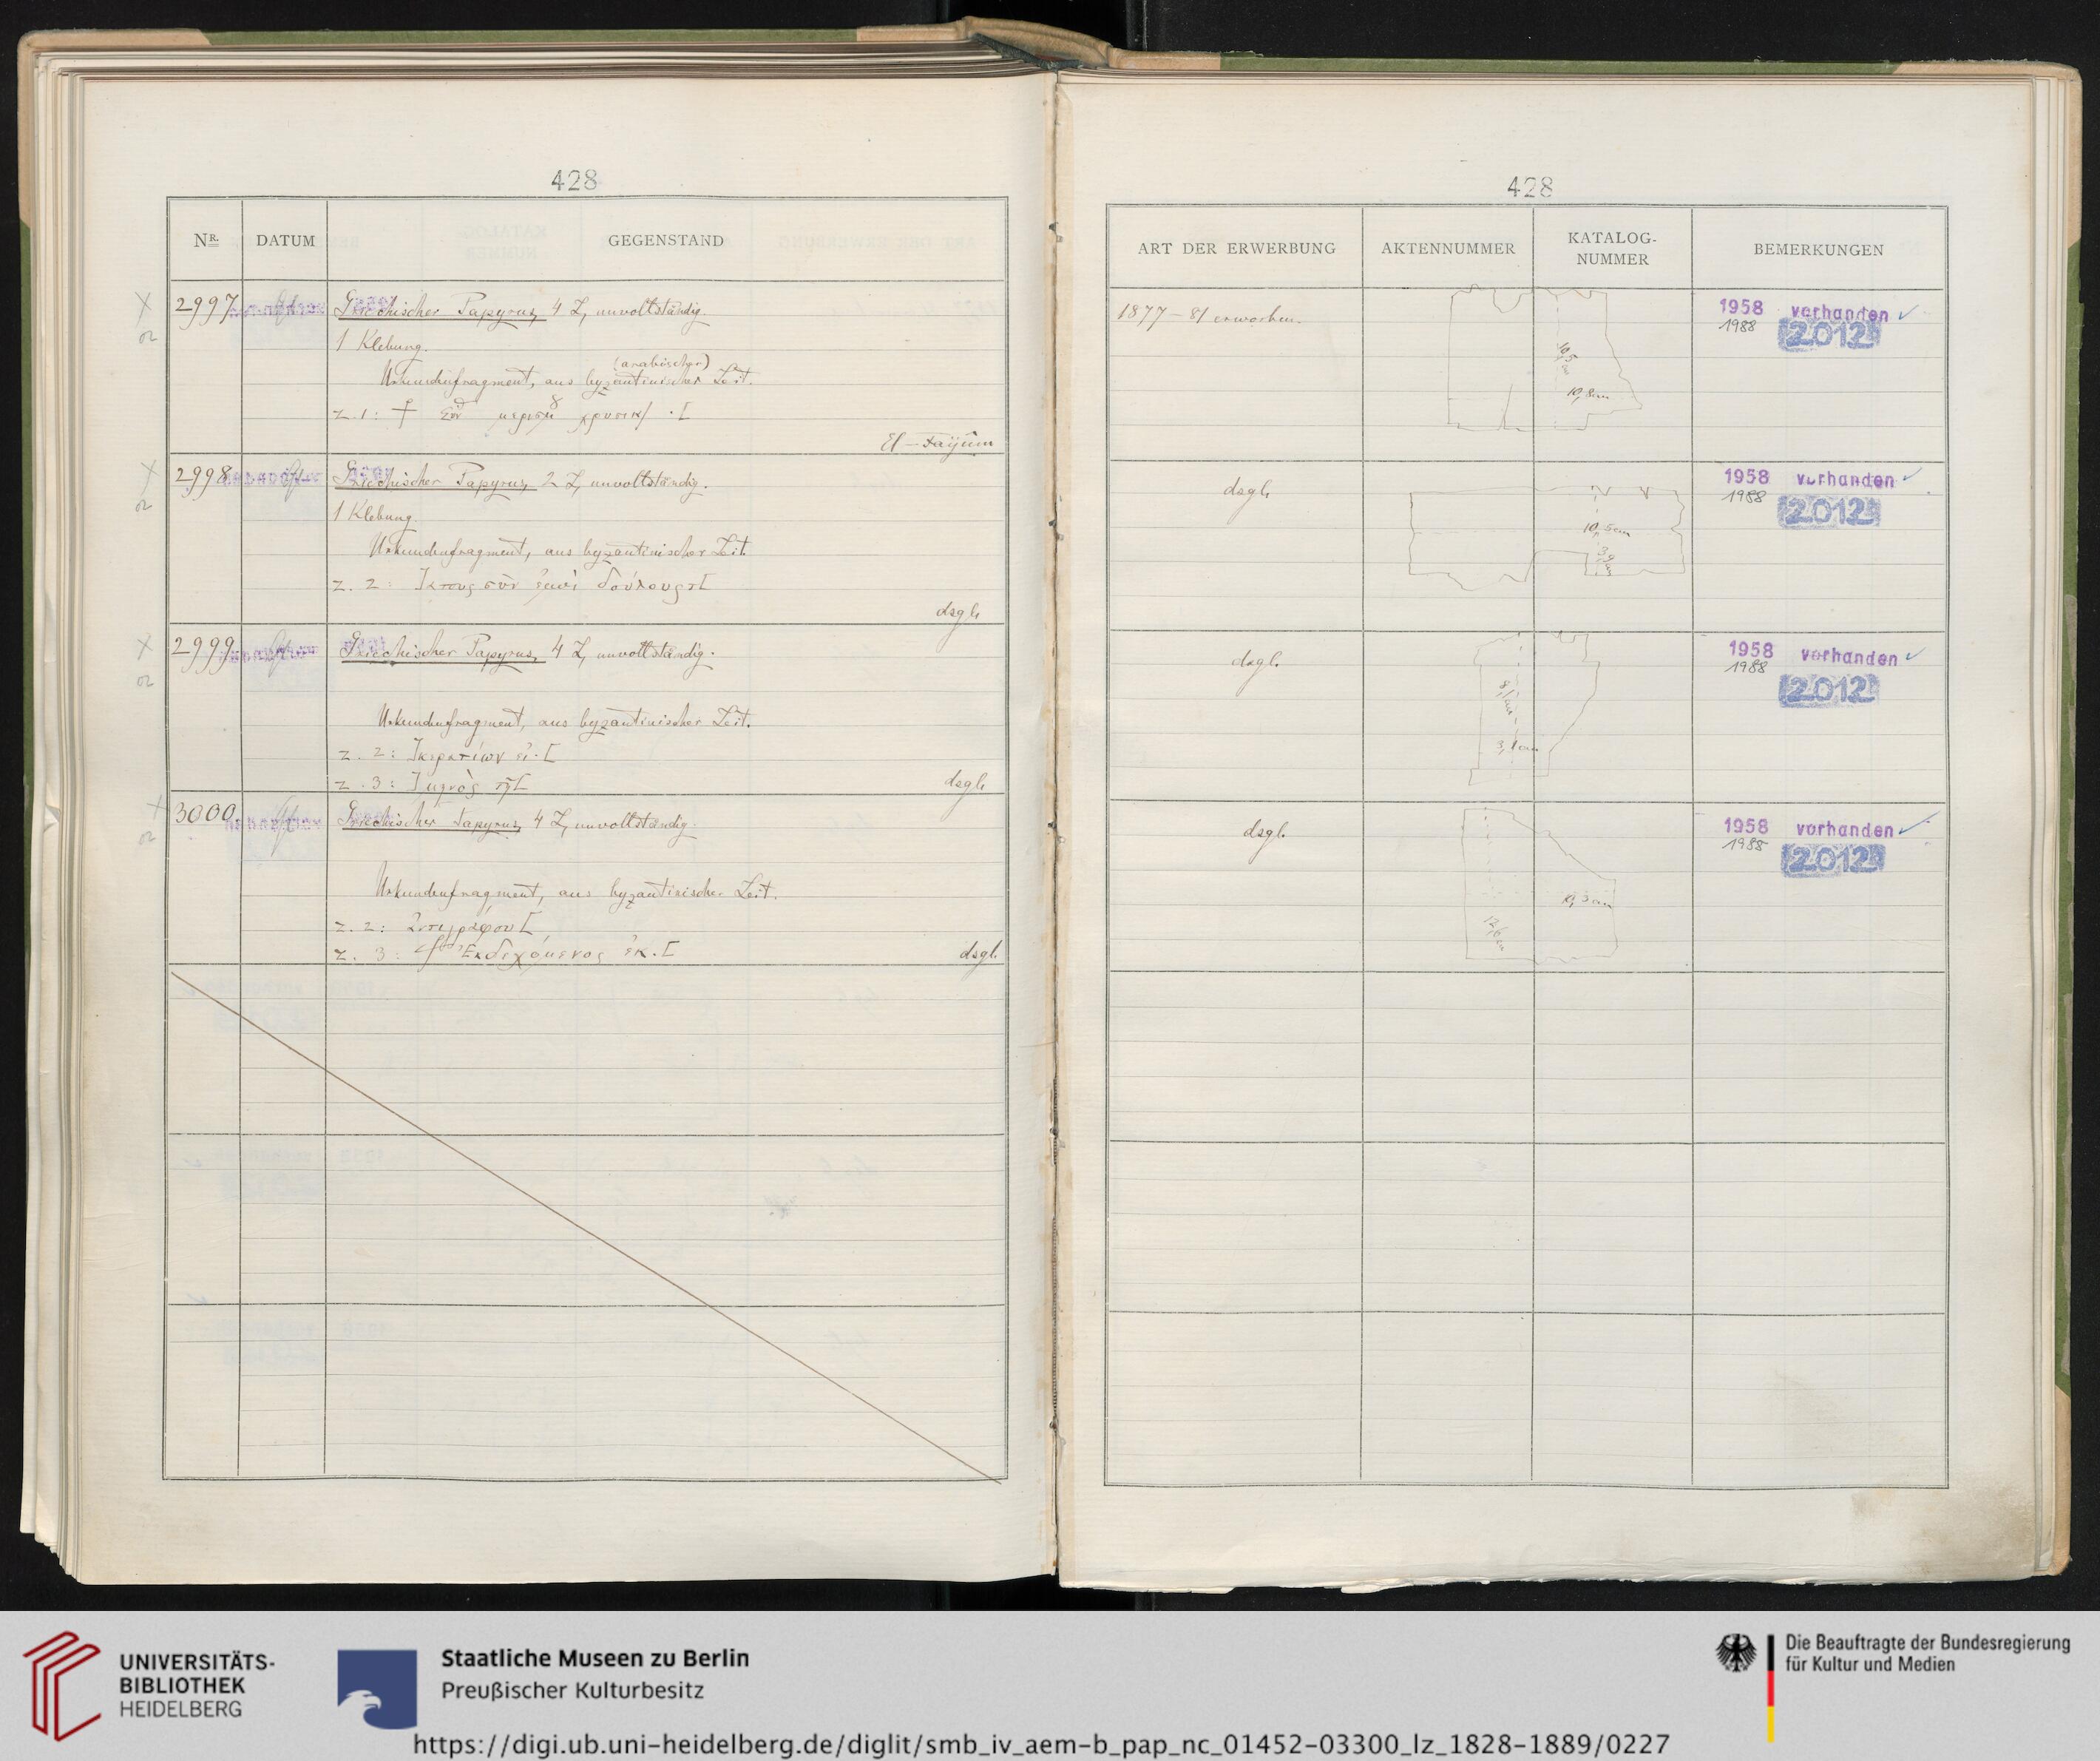 428
NR. DATUM GEGENSTAND
2997 Griechischer Papyrus, 4 Z, unvollständig.
1 Klebung.
(arabischer)
Urkundenfragment, aus byzantinischer Zeit.
Z. 1: [
El-Faijûm
2998 Griechischer Papyrus, 2 Z, unvollständig.
1 Klebung
Urkundenfragment, aus byzantinischer Zeit.
Z. 2: δούλους
dsgl.
2999 Griechischer Papyrus, 4 Z, unvollständig.
Urkundenfragment, aus byzantinischer Zeit.
Z. 2: ]κερατίων
Z. 3:
dsgl.
3000 Griechischer Papyrus, 4 Z, unvollständig.
Urkundenfragment, aus byzantinischer Zeit.
Z. 2:
Z. 3: Ἐκδεχόμενος ἐκ.[
dsgl.
428
ART DER ERWERBUNG AKTENNUMMER KATALOG-NUMMER BEMERKUNGEN
1877-81 erworben. 1958 vorhanden
1988 2012
10,5 cm
10,8 cm
dsgl. 1958 vorhanden
1988 2012
10,5 cm
dsgl. 1958 vorhanden
1988 2012
dsgl. 1958 vorhanden
1988 2012
UNIVERSITÄTS-
BIBLIOTHEK
HEIDELBERG
Staatliche Museen zu Berlin
Preußischer Kulturbesitz
Die Beauftragte der Bundesregierung
für Kultur und Medien
https://digi.ub.uni-heidelberg.de/diglit/smb_iv_aem-b_pap_nc_01452-03300_lz_1828-1889/0227